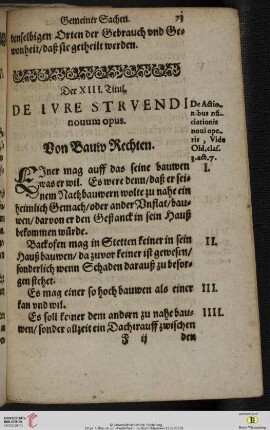 Gemeiner Sachen. 73
denselbigen Orten der Gebrauch vnd Ge-
wonheit/daß sie getheilt werden.
Der XIII. Titul.
DE IVRE STRVENDI
nouum opus.
De Action
nibus nũ-
ciationis
noui ope-
ris, Vide
Old.claf.
3.act.7.
Von Bauw Rechten.
EIner mag auff das seine bauwen
was er wil. Es were denn/daß er sei-
nem Nachbauwern wolte zu nahe ein
heimlich Gemach/oder ander Vnflat/bau-
wen/darvon er den Gestanck in sein Hauß
bekommen würde.
I.
Backofen mag in Stetten keiner in sein
Hauß bauwen/da zuvor keiner ist gewesen/
sonderlich wenn Schaden darauß zu besor-
gen stehet.
II.
Es mag einer so hoch bauwen als einer
kan vnd wil.
III.
Es soll keiner dem andern zu nahe bau-
wen/sonder allzeit ein Dachtrauff zwischen
IIII.
F ij den